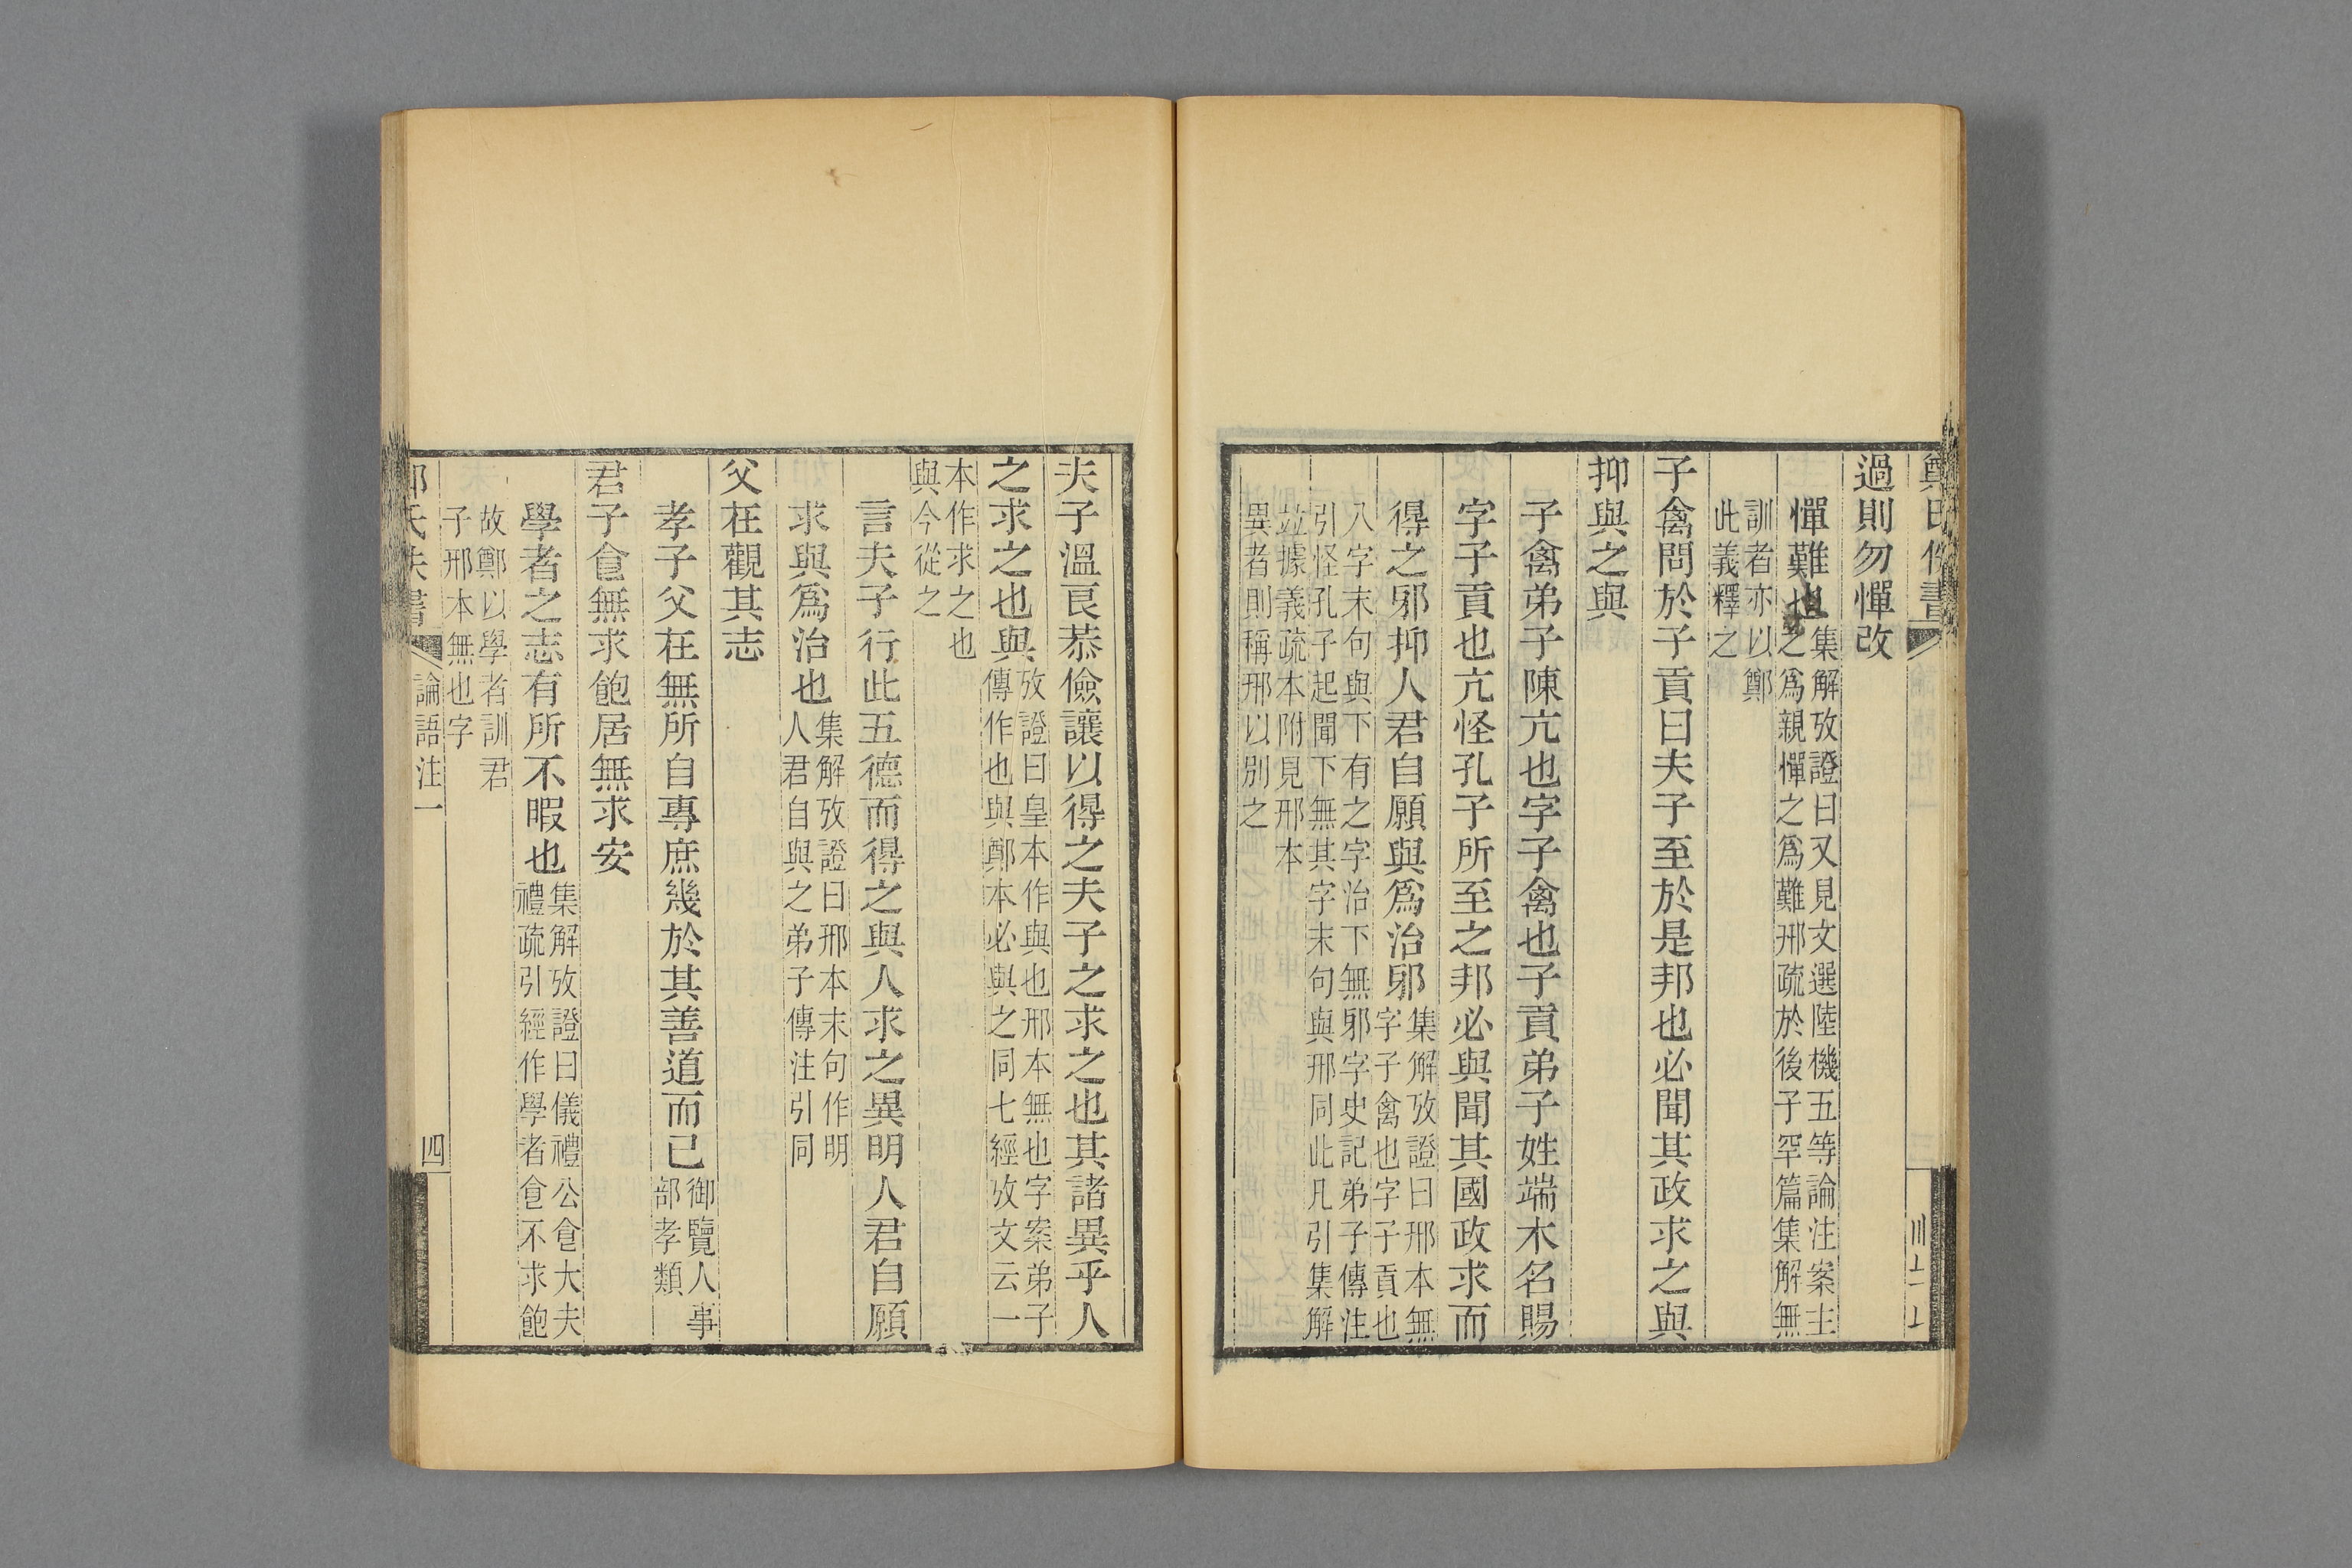 過則勿憚改
憚難也
集解攷證曰又見文選陸機五等論注案主
之爲親憚之爲難邢疏於後子罕篇集解無
訓者亦以鄭
此義釋之
子禽問於子貢曰夫子至於是邦也必聞其政求之與
抑與之與
子禽弟子陳亢也字子禽也子貢弟子姓端木名賜
字子貢也亢怪孔子所至之邦必與聞其國政求而
得之邪抑人君自願與爲治邪
集解攷證曰邢本無
字子禽也字子貢也
八字末句與下有之字治下無邪字史記弟子傳注
引怪孔子起聞下無其字末句與邢同此凡引集解
竝據義疏本附見邢本
異者則稱邢以别之
夫子溫良恭儉讓以得之夫子之求之也其諸異乎人
之求之也與
攷證曰皇本作與也邢本無也字案弟子
傳作也與鄭本必與之同七經攷文云一
本作求之也
與今從之
言夫子行此五德而得之與人求之異明人君自願
求與爲治也
集解攷證曰邢本末句作明
人君自與之弟子傳注引同
父在觀其志
孝子父在無所自專庶幾於其善道而已
御覽人事
部孝類
君子食無求飽居無求安
學者之志有所不暇也
集解攷證曰儀禮公食大夫
禮疏引經作學者食不求飽
故鄭以學者訓君
子邢本無也字
論語注一
四